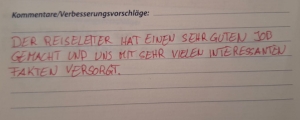 Kommentare/Verbesserungsvorschläge:
DER REISELEITER HAT EINEN SEHR GUTEN JOB
GEMACHT UND UNS MIT SEHR VIELEN INTERESSANTEN
FAKTEN VERSORGT.